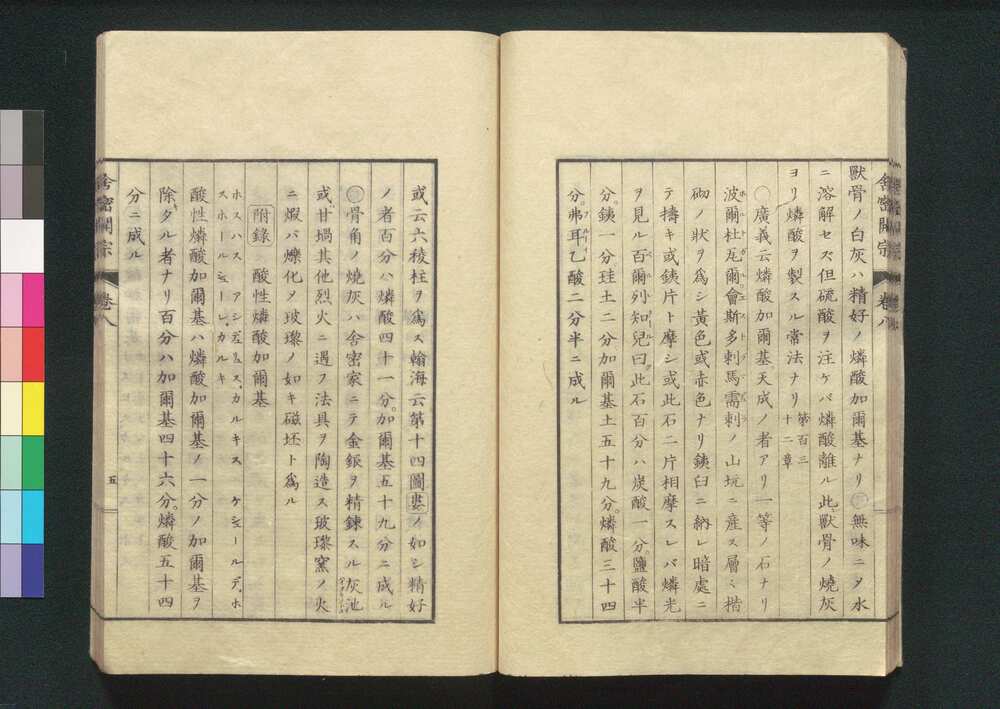 獸骨ノ白灰ハ精好ノ燐酸加爾基ナリ○無味ニタ水
ニ溶解セズ但硫酸ヲ注ケバ燐酸離ル此獸骨ノ燒灰
ヨリ燐酸ヲ製スル常法ナリ第百三十二章
○廣義云燐酸加爾基天成ノ者アリ一等ノ石ナリ
波爾杜瓦爾會斯多刺馬需刺ノ山坑ニ産ス層々楷
砌ノ狀ヲ爲シ黃色或赤色ナリ銕臼ニ納レ暗處ニ
テ擣キ或銕片ト摩シ或此石二片相摩スレバ燐光
ヲ見ル百爾列知兒曰此石百分ハ炭酸一分。鹽酸半
分。銕一分珪土二分加爾基土五十九分。燐酸三十四
分。弗耳乙酸二分半ニ成ル
舍密開宗
卷八
或云六稜柱ヲ爲ス翰海云第十四圖婁ノ如シ精好
ノ者百分ハ燐酸四十一分。加爾基五十九分ニ成ル
○骨角ノ燒灰ハ舍密家ニテ金銀ヲ精鍊スル灰池
或甘堝其他烈火ニ遇フ法具ヲ陶造ス玻瓈窯ノ火
ニ煆バ爍化メ玻瓈ノ如キ磁坯ト爲ル
附錄 酸性燐酸加爾基
ホスハス アシデュス、カルキス ゲシュールデ、ホ
スホールシューレ、カルキ
酸性燐酸加爾基ハ燐酸加爾基ノ一分ノ加爾基ヲ
除タル者ナリ百分ハ加爾基四十六分。燐酸五十四
分ニ成ル
舍密開宗
卷八
五